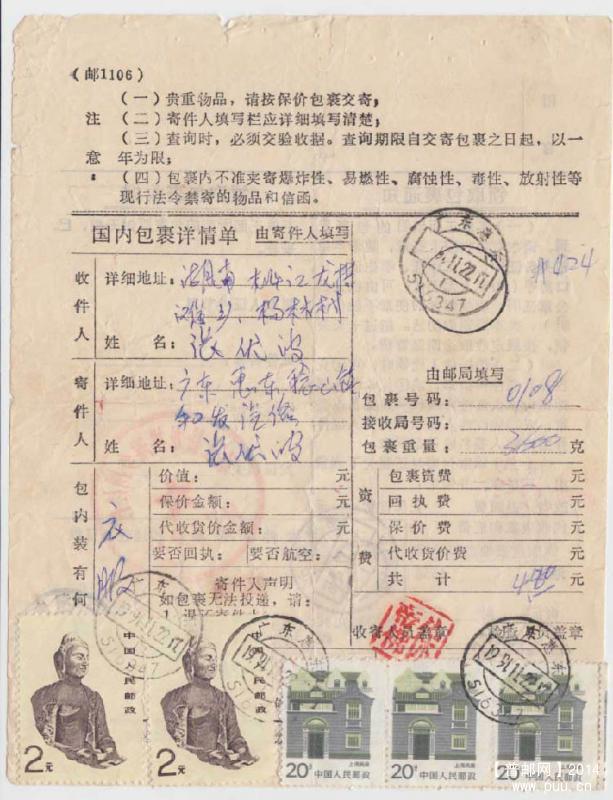 (邮1106)
(一)贵重物品,请按保价包裹交寄;
注 (二)寄件人填写栏应详细填写清楚;
(三)查询时,必须交验收据。查询期限自交寄包裹之日起,以一
意 年为限;
(四)包裹内不准夹寄爆炸性、易燃性、腐蚀性、毒性、放射性等
现行法令禁寄的物品和信函。
国内包裹详情单 由寄件人填写
收件人
详细地址:湖南桃江
乡
姓名:张
寄件人
详细地址:广东惠东稔山镇
姓名:张
由邮局填写
包裹号码:0108
接收局号码:
包裹重量: 克
包内装有何
衣服
价值: 元
保价金额: 元
代收货价金额: 元
要否回执: 要否航空:
寄件人声明
如包裹无法投递,请:
资费
包裹资费 元
回执费 元
保价费 元
代收货价费 元
共计 4.60 元
收寄人员盖章
广东惠东
516347
广东惠东
19.94.11.22.17
516347
广东惠东
19.94.11.22.17
516347
中国人民邮政
2元
中国人民邮政
2元
上海民居
20分 中国人民邮政
上海民居
20分 中国人民邮政
20分 中国人民邮政
普邮网 2014
www.puu.cn